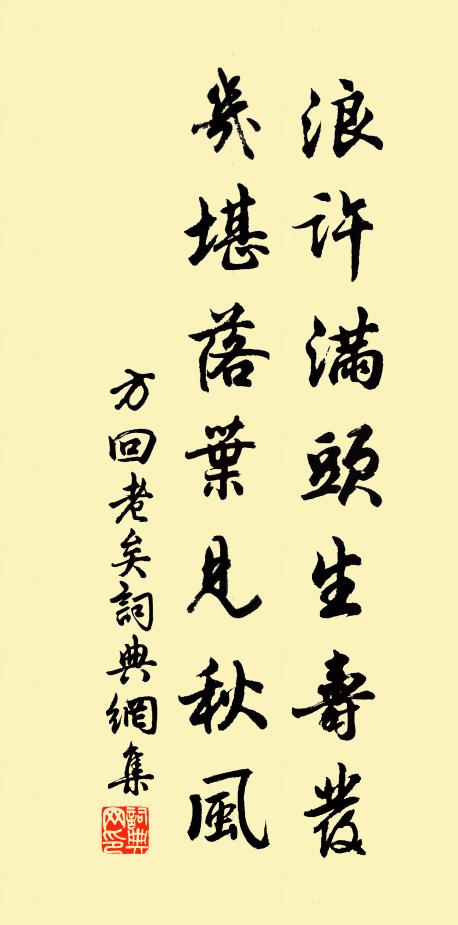 浪許滿頭生壽髮
幾堪落葉見秋風
方回老矣詞典網集
詞典網印